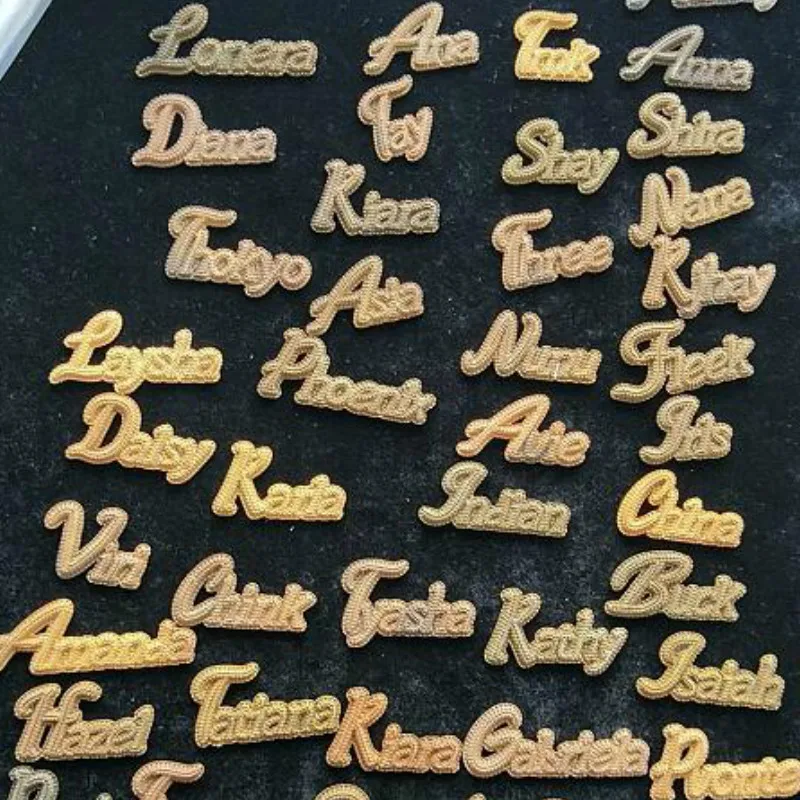 Lonera
Ana
Took
Anna
Diana
Tay
Shay
Shira
Kiara
Nana
Thokyo
Three
Asia
Laysha
Phoenix
Nunu
Fleek
Daisy
Avie
Iris
Karia
Indian
China
Viri
Chink
Tyasha
Buck
Kathy
Amanda
Isaiah
Hazel
Tatiana
Kiara
Gabriela